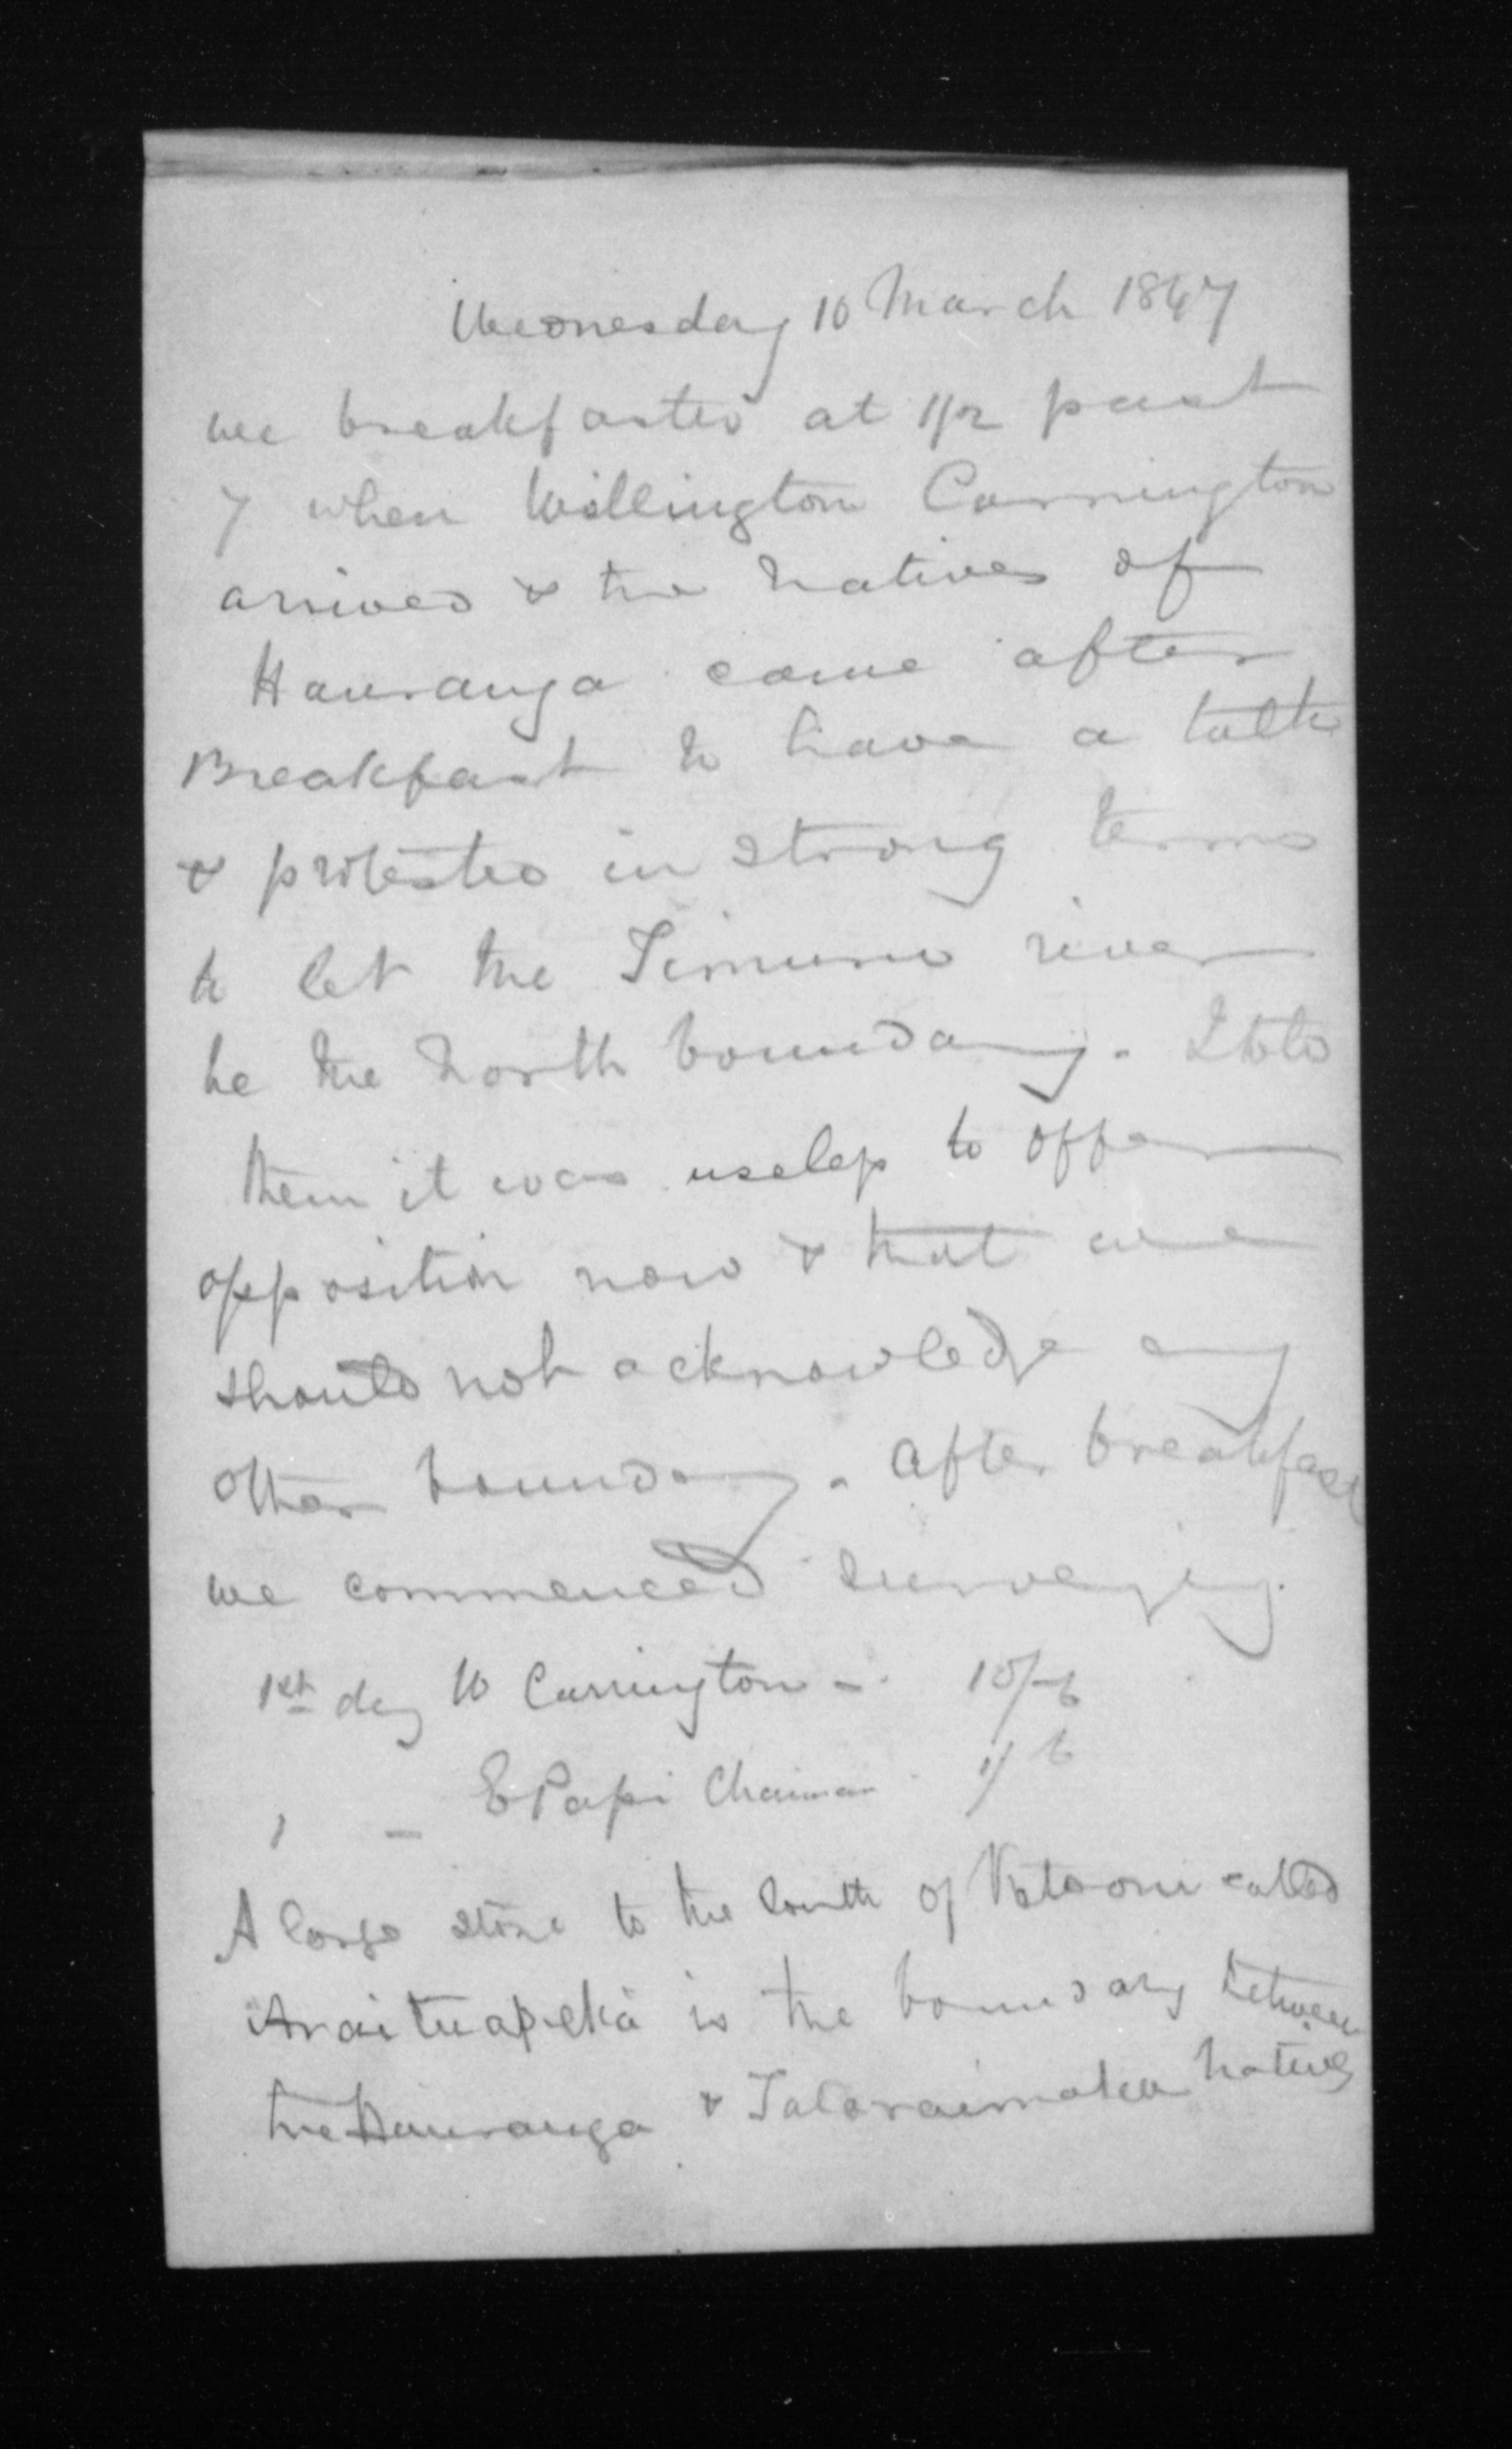 Wednesday 10 March 1847
we breakfasted at 1/2 past
7 when Wellington Carrington
arrived & the natives of
Hauranga came after
Breakfast to have a talk
& protested in strong terms
to let the Timuru river
be the North boundary. I told
them it was useless to offer
opposition now & that we
should not acknowledge any
other boundary. After breakfast
we commenced surveying.
1st day W Carrington - 10/-
E Papi Chainman 1/6
A large stone to the South of called
Araituapeka is the boundary between
the Hauranga & Tataraimaka natives